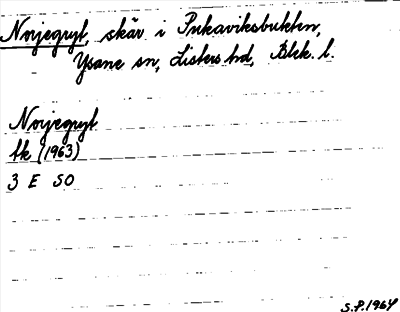 Norjegryt, skär i Pukaviksbukten,
Ysane sn, Listers hd, Blek. l.
Norjegryt
fk (1963)
3 E SO
S.P. 1964